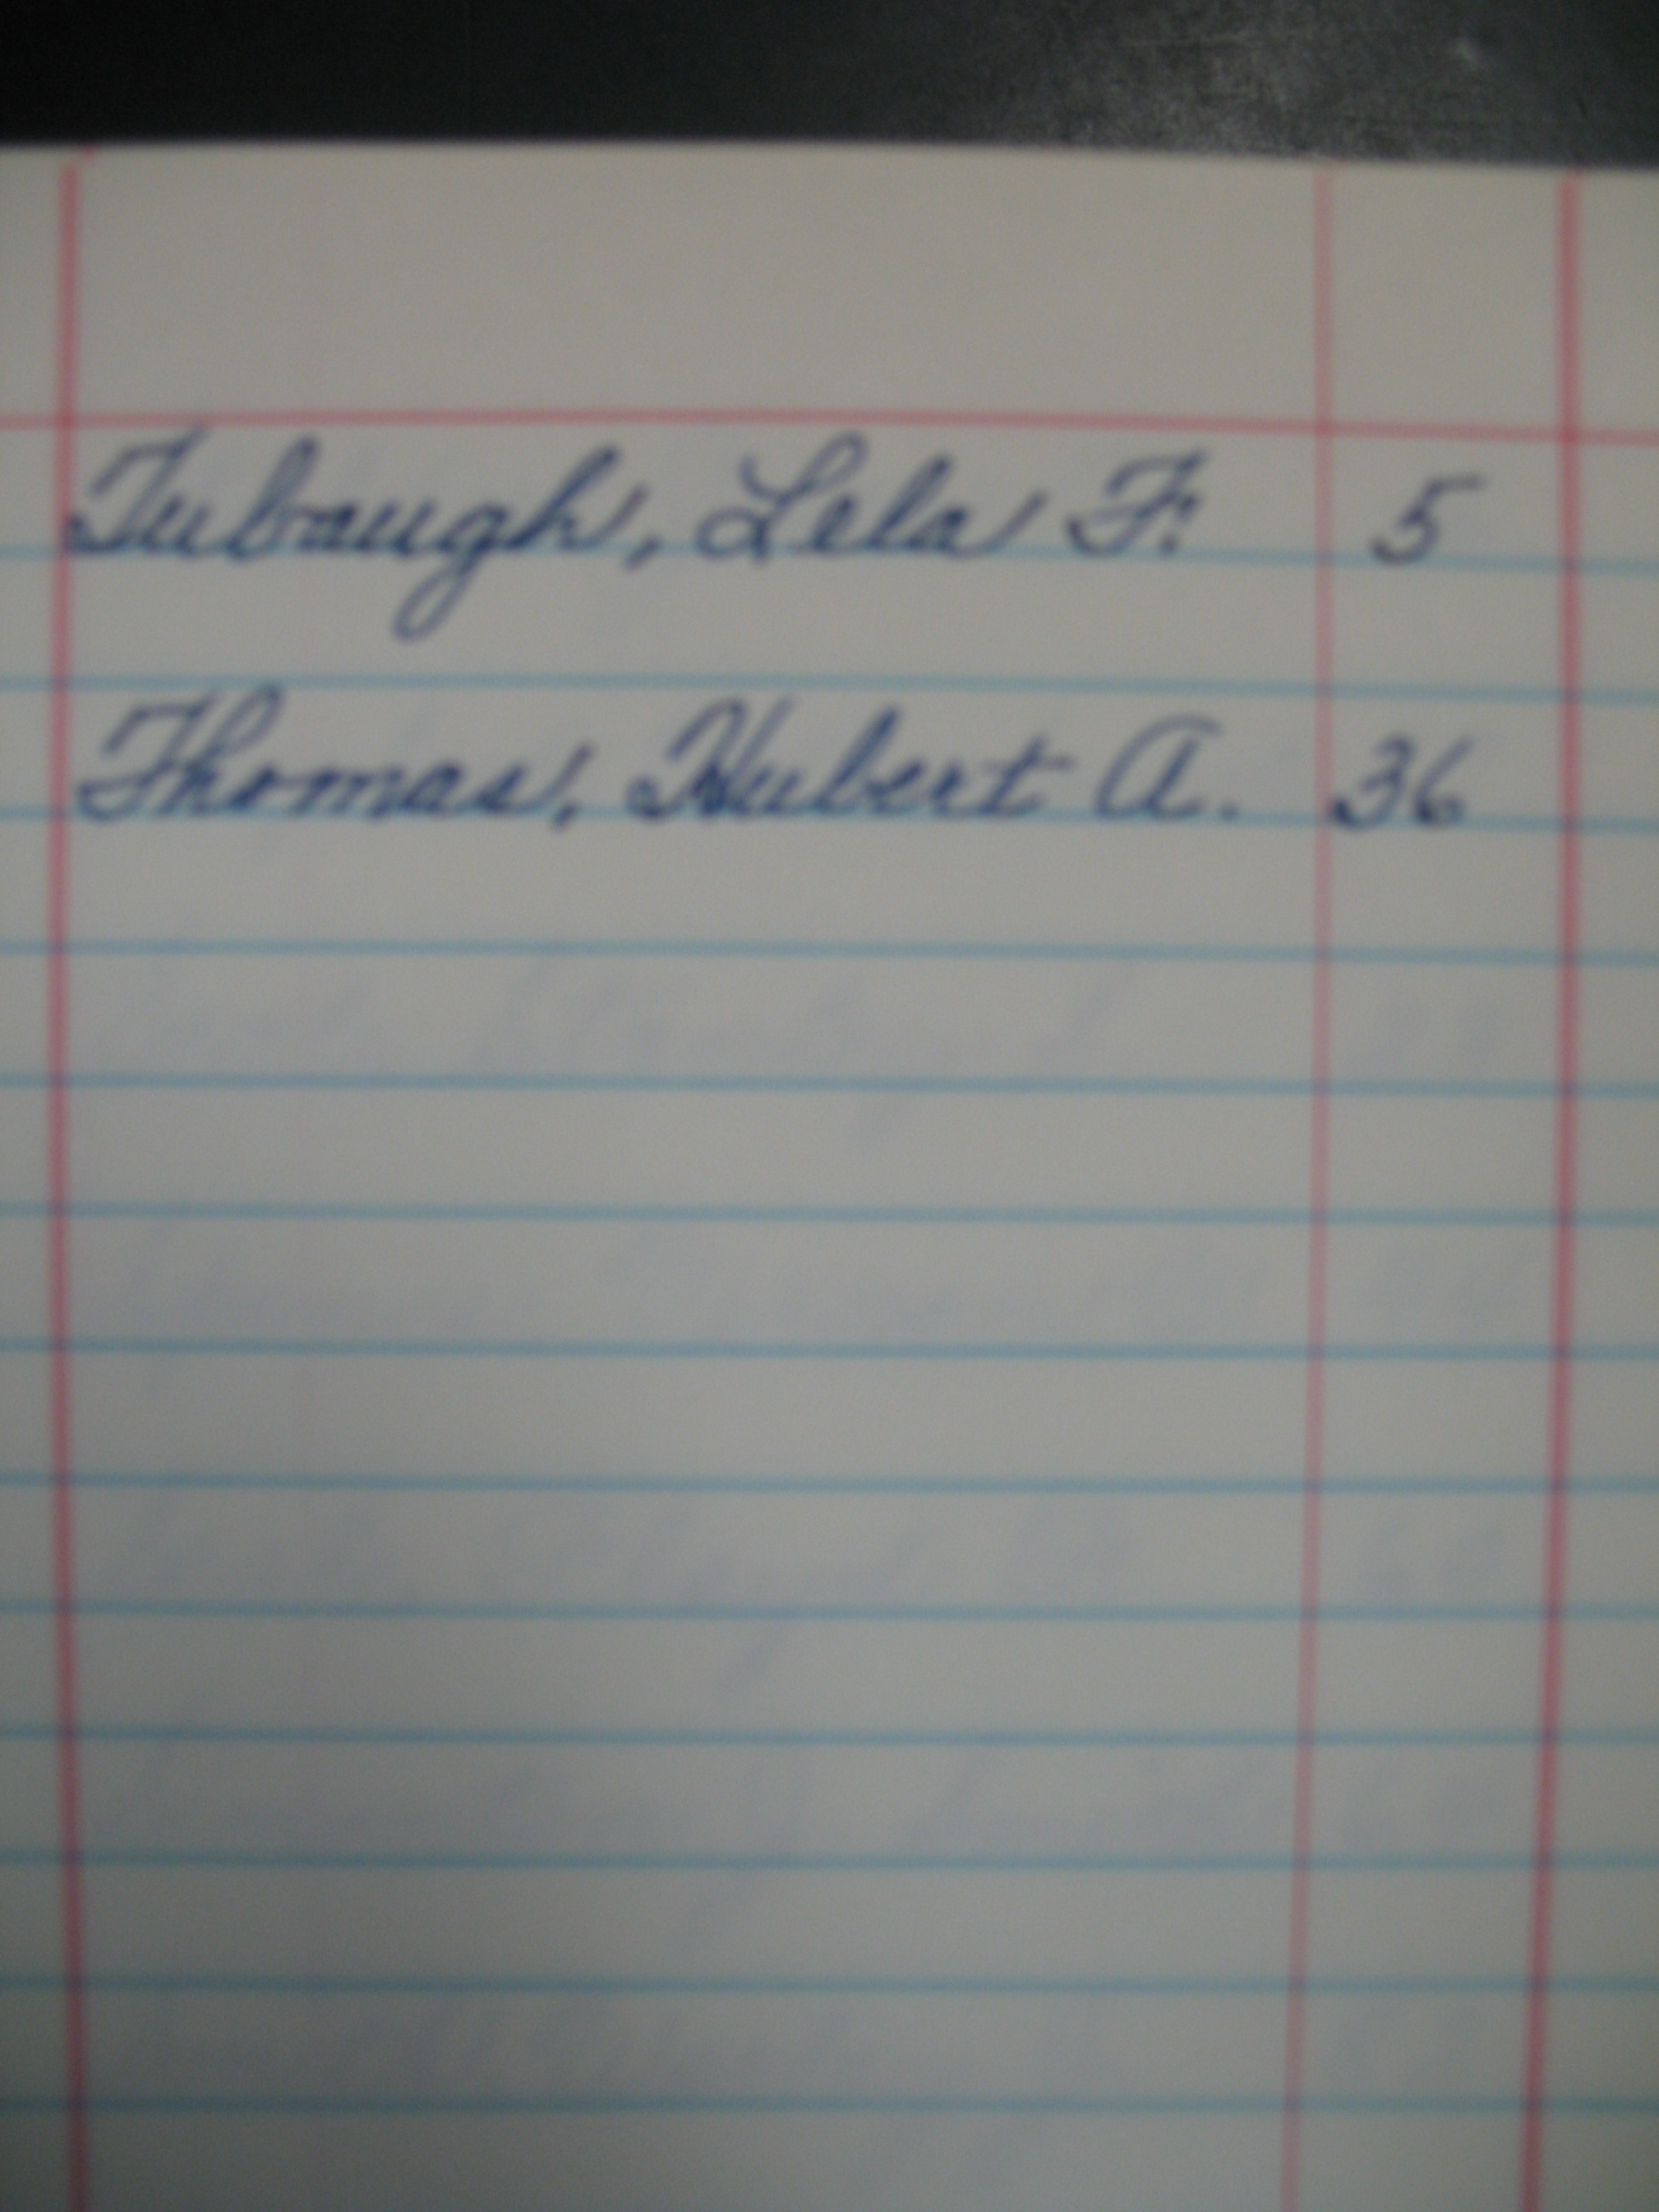 Tubaugh, Lela F. 5
Thomas, Hubert A. 36